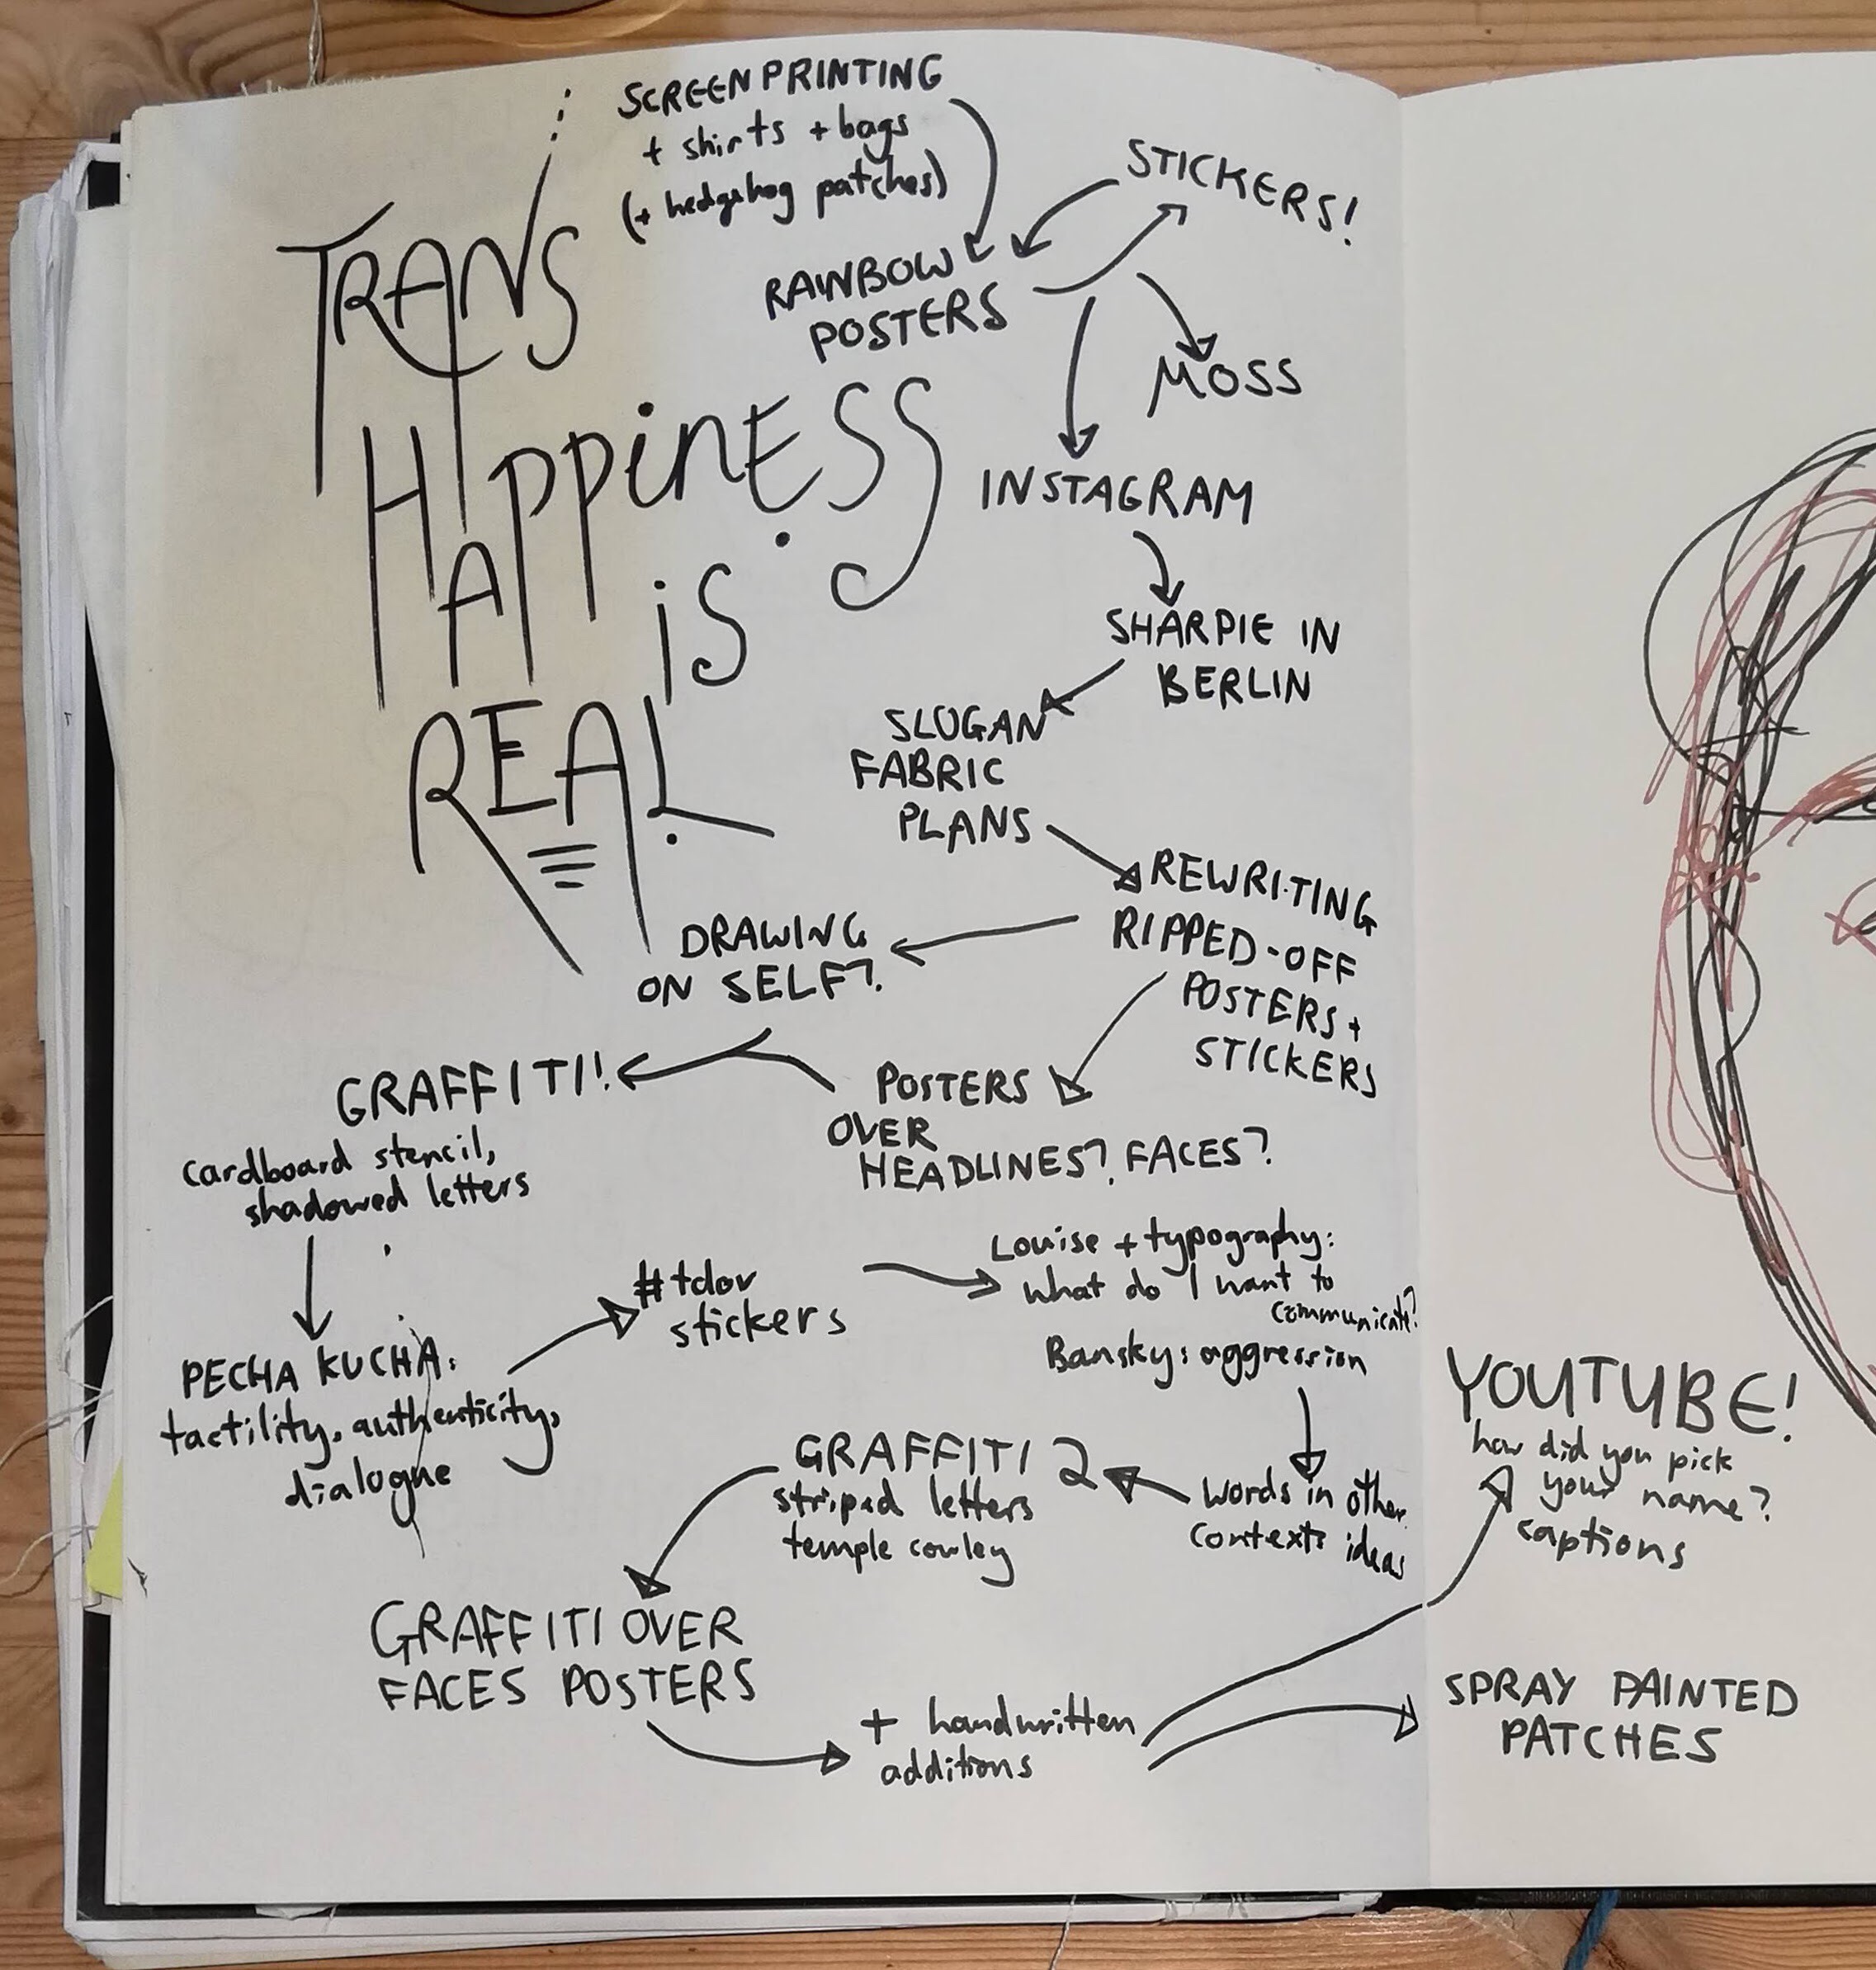 SCREENPRINTING
+ shirts + bags
(+ hedgehog patches)
STICKERS!
RAINBOW
POSTERS
MOSS
INSTAGRAM
TRANS
HAPPINESS
iS
REAL.
SHARPIE IN
BERLIN
SLOGAN
FABRIC
PLANS
REWRITING
RIPPED-OFF
POSTERS +
STICKERS
DRAWING
ON SELF?
POSTERS
OVER
HEADLINES? FACES?
GRAFFITI!
cardboard stencil,
shadowed letters
PECHA KUCHA:
tactility, authenticity,
dialogue
#tdov
stickers
Louise + typography:
what do I want to
communicate?
Bansky: aggression
words in other
contexts ideas
GRAFFITI 2
striped letters
temple cowley
GRAFFITI OVER
FACES POSTERS
+ handwritten
additions
YOUTUBE!
how did you pick
your name?
captions
SPRAY PAINTED
PATCHES